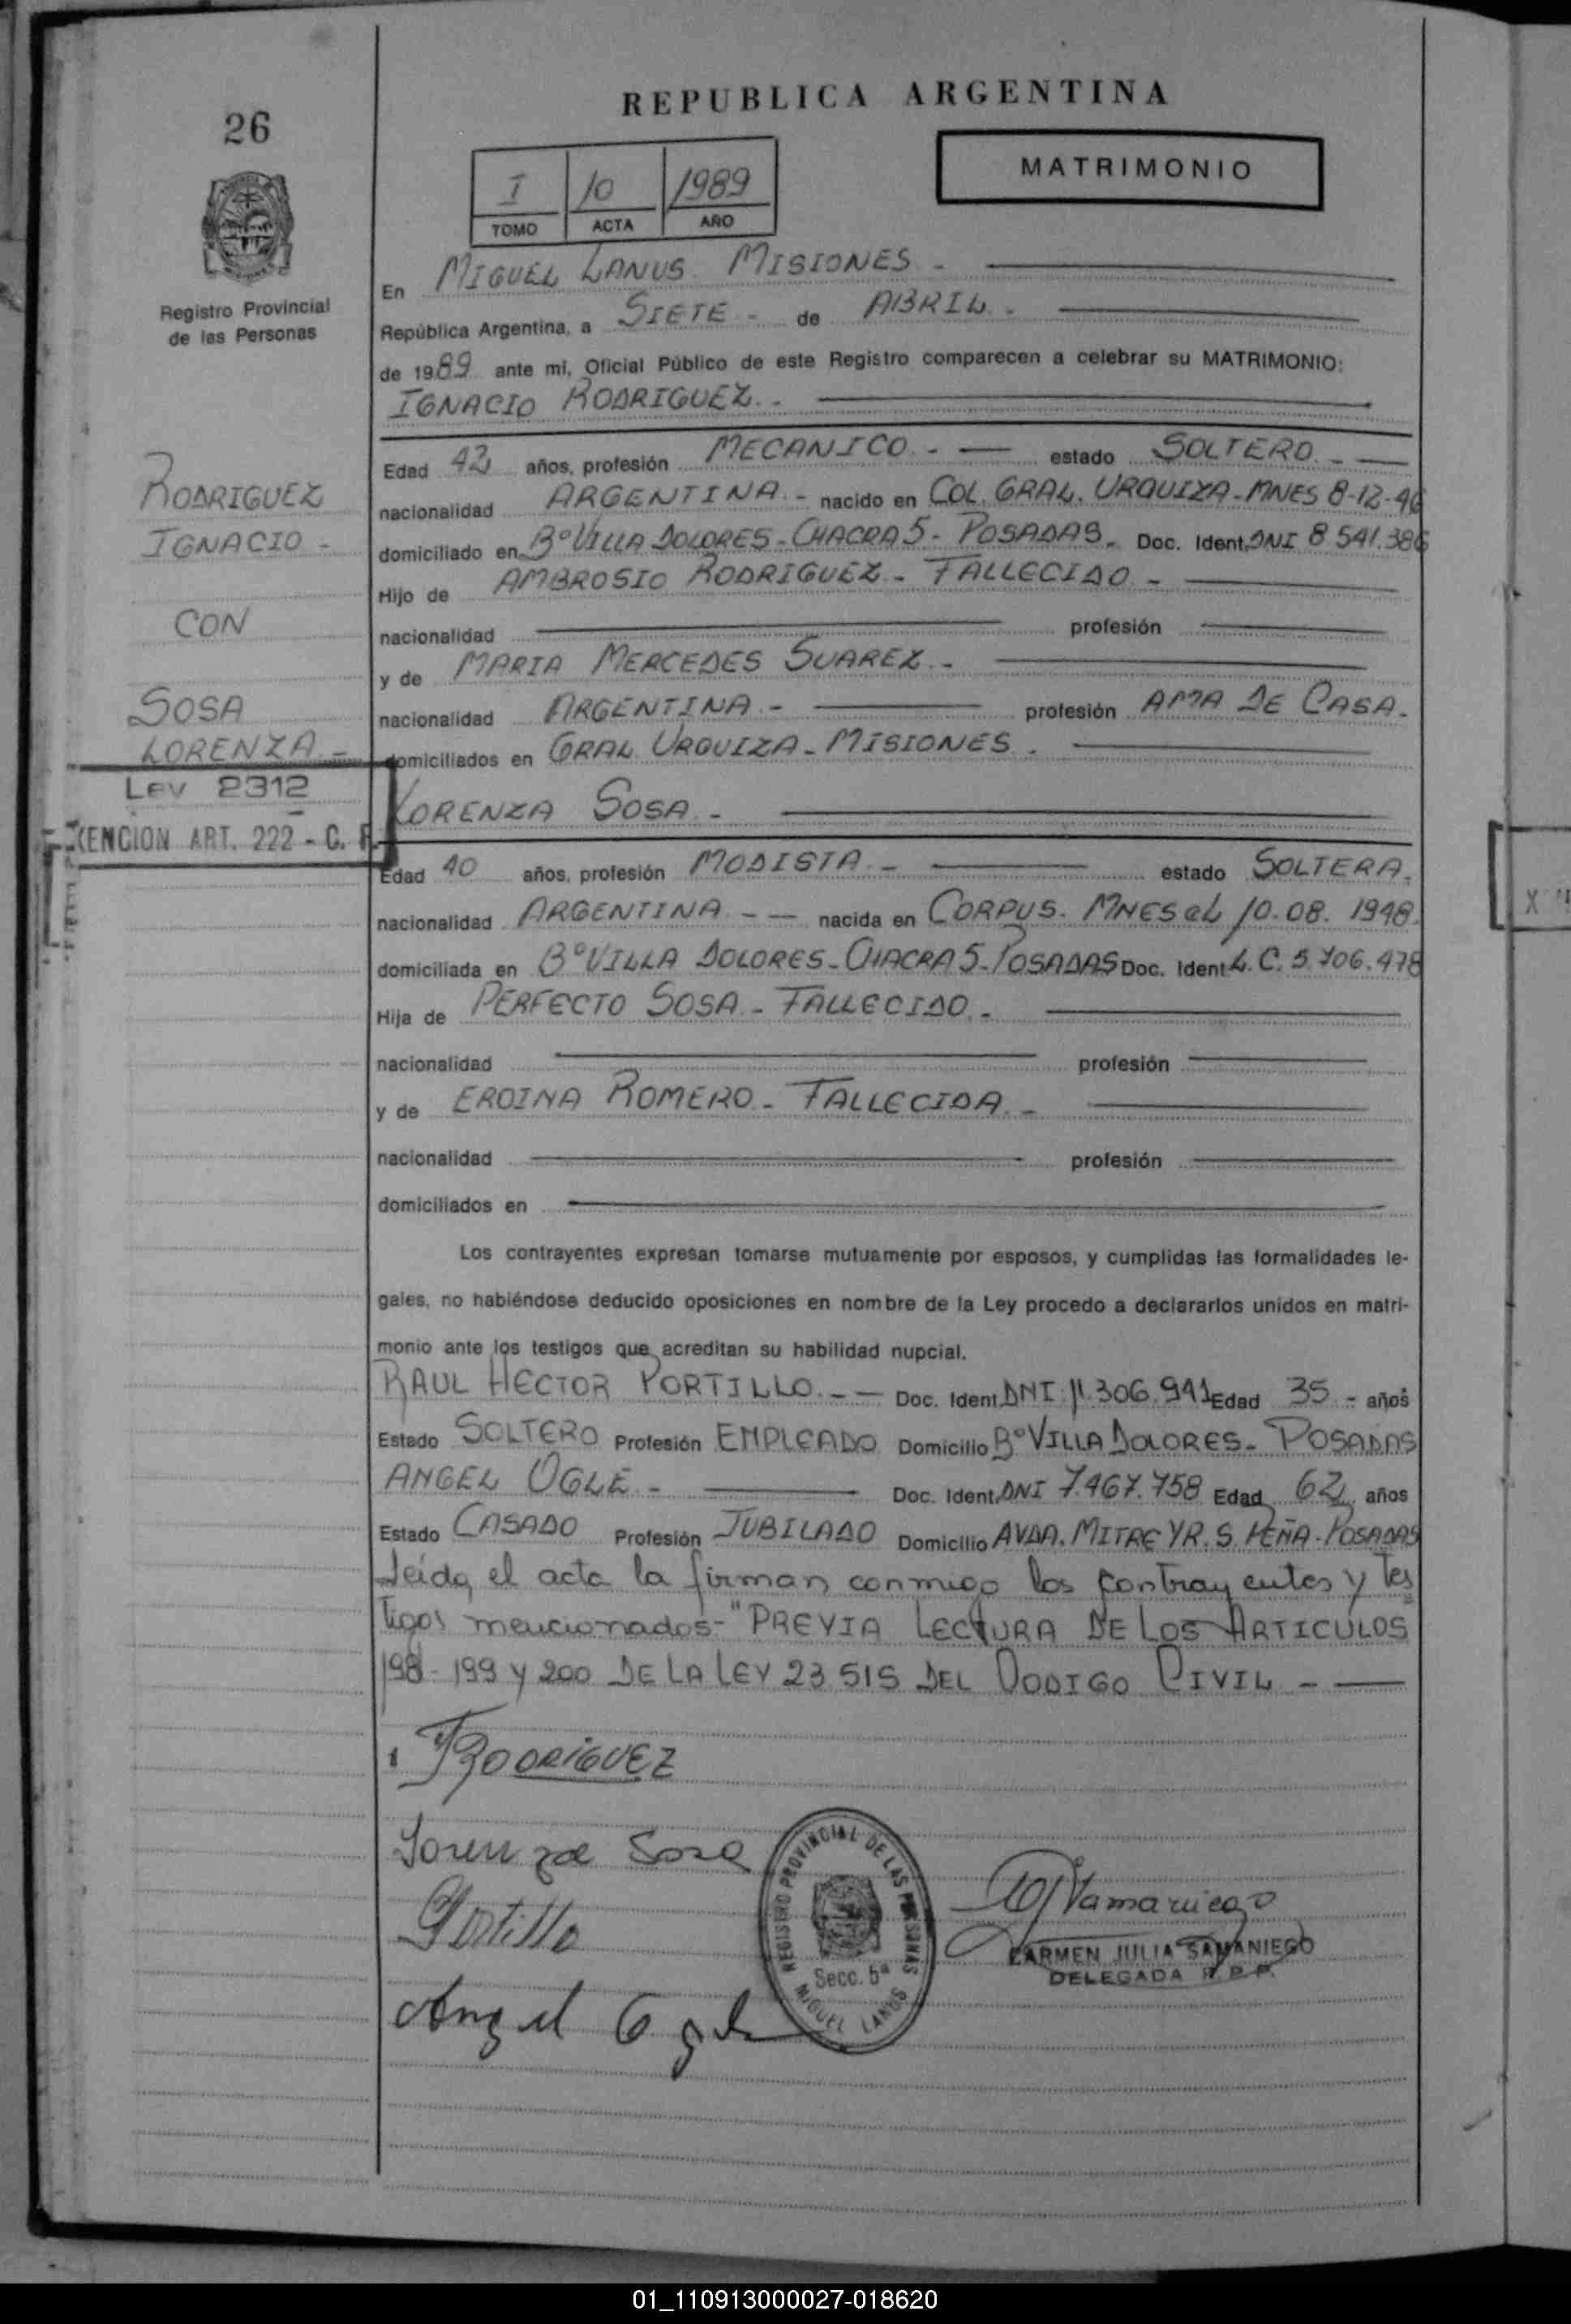 REPUBLICA ARGENTINA
26
MATRIMONIO
I 10 1989
TOMO ACTA AÑO
Registro Provincial
de las Personas
En MIGUEL LANUS MISIONES -
República Argentina, a SIETE - de ABRIL.
de 1989 ante mi, Oficial Público de este Registro comparecen a celebrar su MATRIMONIO:
IGNACIO RODRIGUEZ. -
RODRIGUEZ
IGNACIO -
CON
SOSA
LORENZA. -
Ley 2312
EXENCION ART. 222 - C. F.
Edad 42 años, profesión MECANICO. - estado SOLTERO. -
nacionalidad ARGENTINA. - nacido en COL. GRAL. URQUIZA - MNES 8-12-46
domiciliado en Bº VILLA DOLORES - CHACRA 5 - POSADAS. Doc. Ident. DNI 8.541.386
Hijo de AMBROSIO RODRIGUEZ - FALLECIDO -
nacionalidad profesión
y de MARIA MERCEDES SUAREZ. -
nacionalidad ARGENTINA. - profesión AMA DE CASA.
domiciliados en GRAL. URQUIZA - MISIONES.
LORENZA SOSA -
Edad 40 años, profesión MODISTA. - estado SOLTERA.
nacionalidad ARGENTINA. - - nacida en CORPUS. MNES el 10.08.1948.
domiciliada en Bº VILLA DOLORES - CHACRA 5 - POSADAS Doc. Ident L.C. 5.706.478
Hija de PERFECTO SOSA - FALLECIDO. -
nacionalidad profesión
y de EROINA ROMERO - FALLECIDA. -
nacionalidad profesión
domiciliados en
Los contrayentes expresan tomarse mutuamente por esposos, y cumplidas las formalidades le-
gales, no habiéndose deducido oposiciones en nombre de la Ley procedo a declararlos unidos en matri-
monio ante los testigos que acreditan su habilidad nupcial.
RAUL HECTOR PORTILLO. - - Doc. Ident. DNI: 11.306.941 Edad 35 - años
Estado SOLTERO Profesión EMPLEADO Domicilio Bº VILLA DOLORES - POSADAS
ANGEL OGLE - Doc. Ident. DNI 7.467.758 Edad 62 años
Estado CASADO Profesión JUBILADO Domicilio AVDA. MITRE Y R. S. PEÑA - POSADAS
Leída el acta la firman conmigo los contrayentes y tes
tigos mencionados - "PREVIA LECTURA DE LOS ARTICULOS
198 - 199 y 200 DE LA LEY 23515 DEL CODIGO CIVIL -
I RODRIGUEZ
Lorenza Sosa
Portillo
Angel Ogle
REGISTRO PROVINCIAL DE LAS PERSONAS
Secc. 5ª
MIGUEL LANUS
CJSamaniego
CARMEN JULIA SAMANIEGO
DELEGADA R.P.P.
01_110913000027-018620